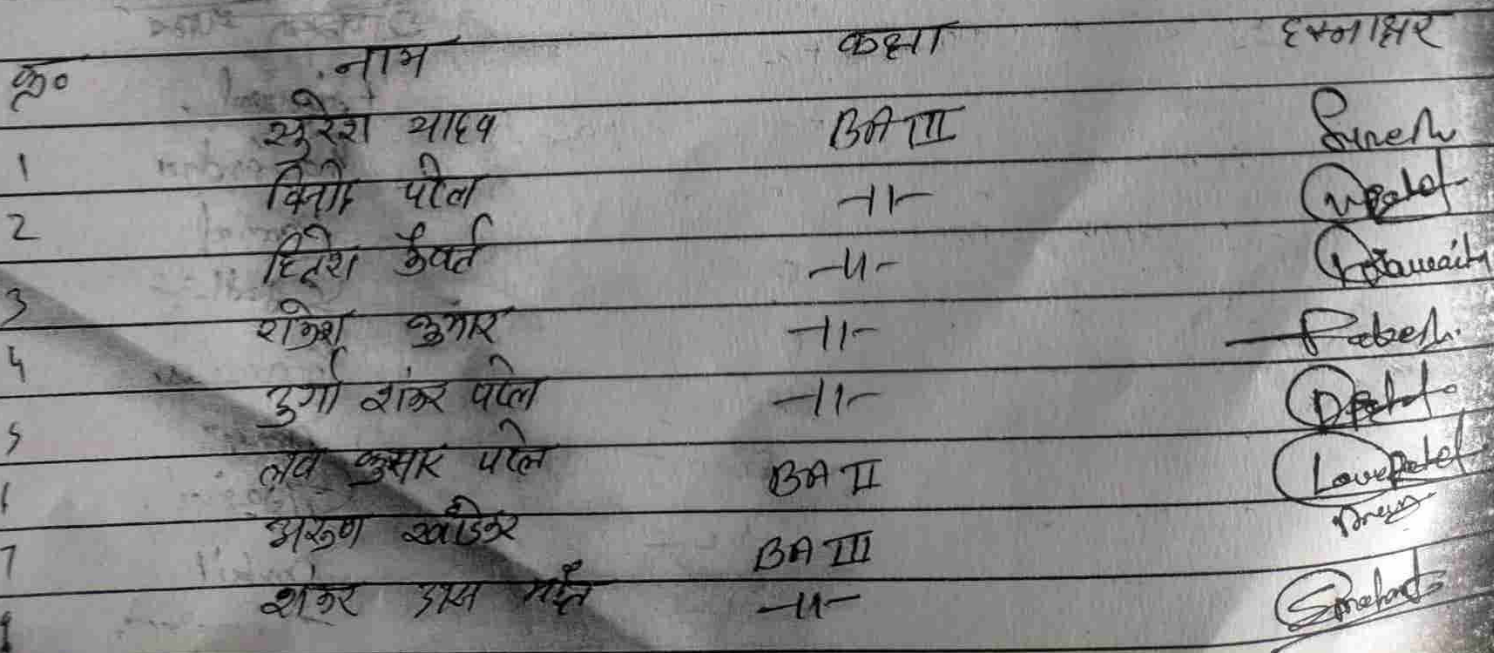 क्र० नाम कक्षा हस्ताक्षर
1 सुरेश यादव BA III Suresh
2 विनोद पटेल -11- Patel
3 हितेश कैवर्त -11-
4 राकेश कुमार -11- Rakesh.
5 दुर्गा शंकर पटेल -11- D Patel
6 लव कुमार पटेल BA II Love Patel
7 अरुण खांडेकर BA III Arun
8 शंकर दास महंत -11-